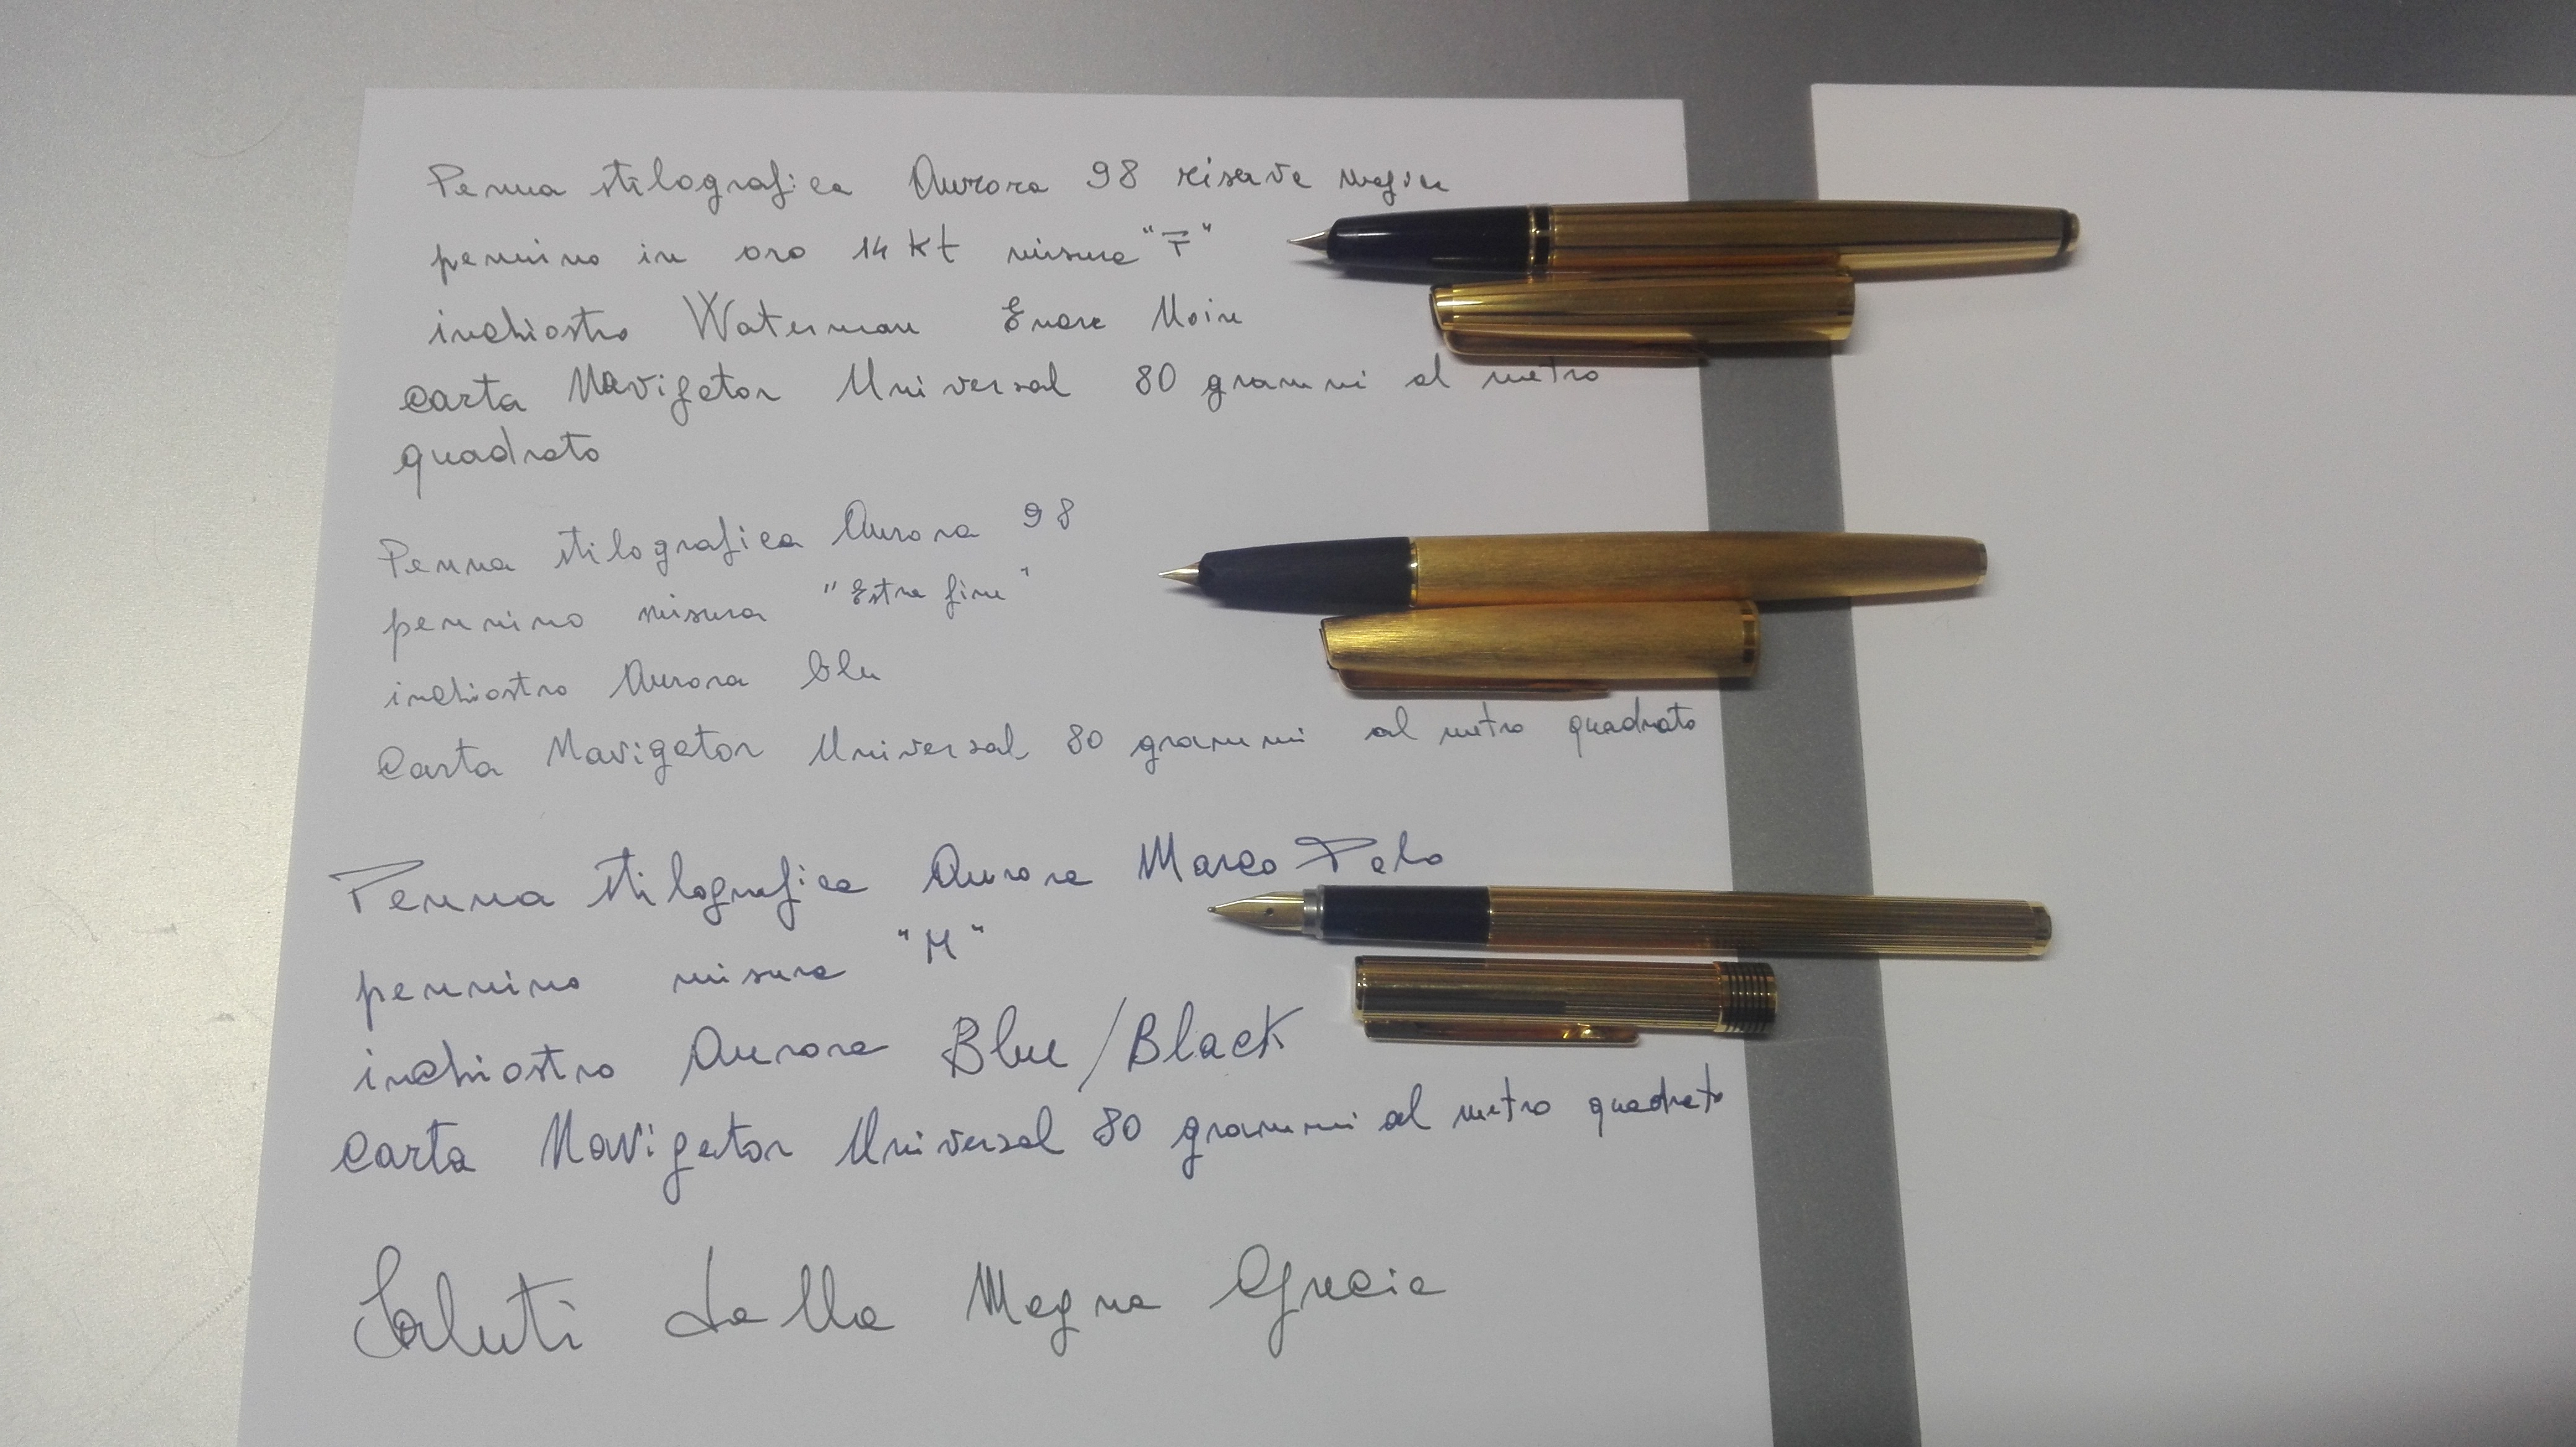 Penna stilografica Aurora 98 riserva magica
pennino in oro 14 Kt misura "F"
inchiostro Waterman Encre Noire
carta Navigator Universal 80 grammi al metro
quadrato
Penna stilografica Aurora 98
pennino misura "Extra fine"
inchiostro Aurora blu
Carta Navigator Universal 80 grammi al metro quadrato
Penna stilografica Aurora Marco Polo
pennino misura "M"
inchiostro Aurora Blue/Black
Carta Navigator Universal 80 grammi al metro quadrato
Saluti dalla Magna Grecia